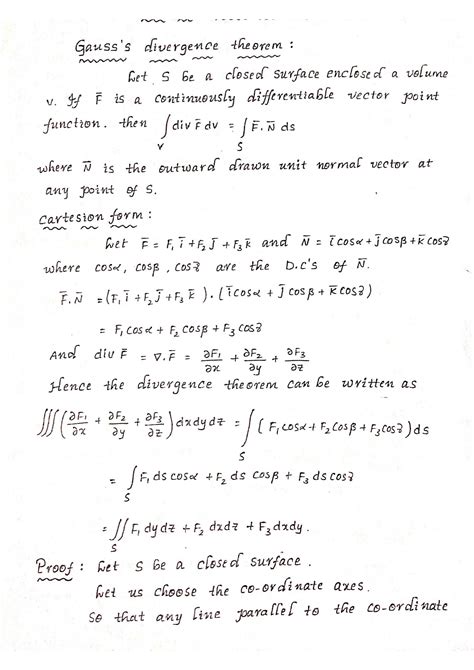 Gauss's divergence theorem :
Let S be a closed surface enclosed a volume
v. If F̄ is a continuously differentiable vector point
function. then ∫_v div F̄ dv = ∫_S F̄. N̄ ds
where N̄ is the outward drawn unit normal vector at
any point of S.
Cartesion form :
Let F̄ = F₁ ī + F₂ J̄ + F₃ k̄ and N̄ = īcosα + J̄cosβ + k̄cosɜ
where cosα, cosβ, cosɜ are the D.c's of N̄.
F̄.N̄ = (F₁ ī + F₂ J̄ + F₃ k̄) . (īcosα + J̄ cosβ + k̄ cosɜ)
= F₁ cosα + F₂ cosβ + F₃ cosɜ
And div F̄ = ∇.F̄ = ∂F₁/∂x + ∂F₂/∂y + ∂F₃/∂z
Hence the divergence theorem can be written as
∭ (∂F₁/∂x + ∂F₂/∂y + ∂F₃/∂z) dxdydz = ∫_S (F₁cosα + F₂ cosβ + F₃cosɜ) ds
= ∫_S F₁ ds cosα + F₂ ds cosβ + F₃ ds cosɜ
= ∬_S F₁ dydz + F₂ dxdz + F₃dxdy.
Proof : Let S be a closed surface.
Let us choose the co-ordinate axes.
So that any line parallel to the co-ordinate